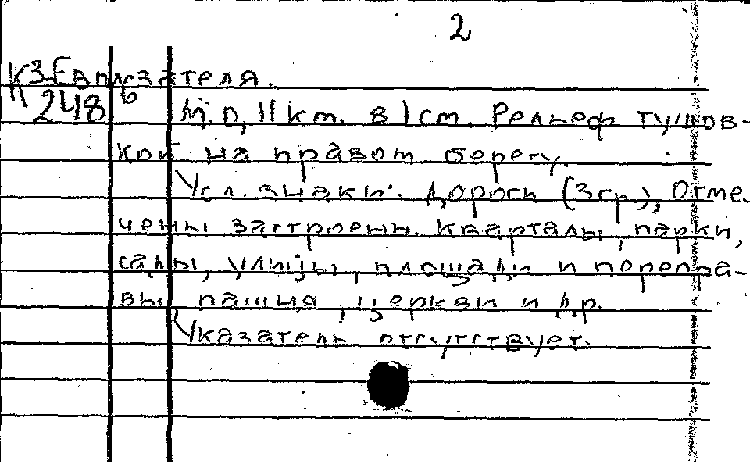 2
К 3-Е в п указателя.
248 б М. 0,11 km. в 1 cm. Рельеф тушов-
кой на правом берегу.
Усл. знаки: Дороги (3 гр.), Отме-
чены застроенн. кварталы, парки,
сады, улицы, площади и перепра-
вы, пашня, церкви и др.
Указатель отсутствует.